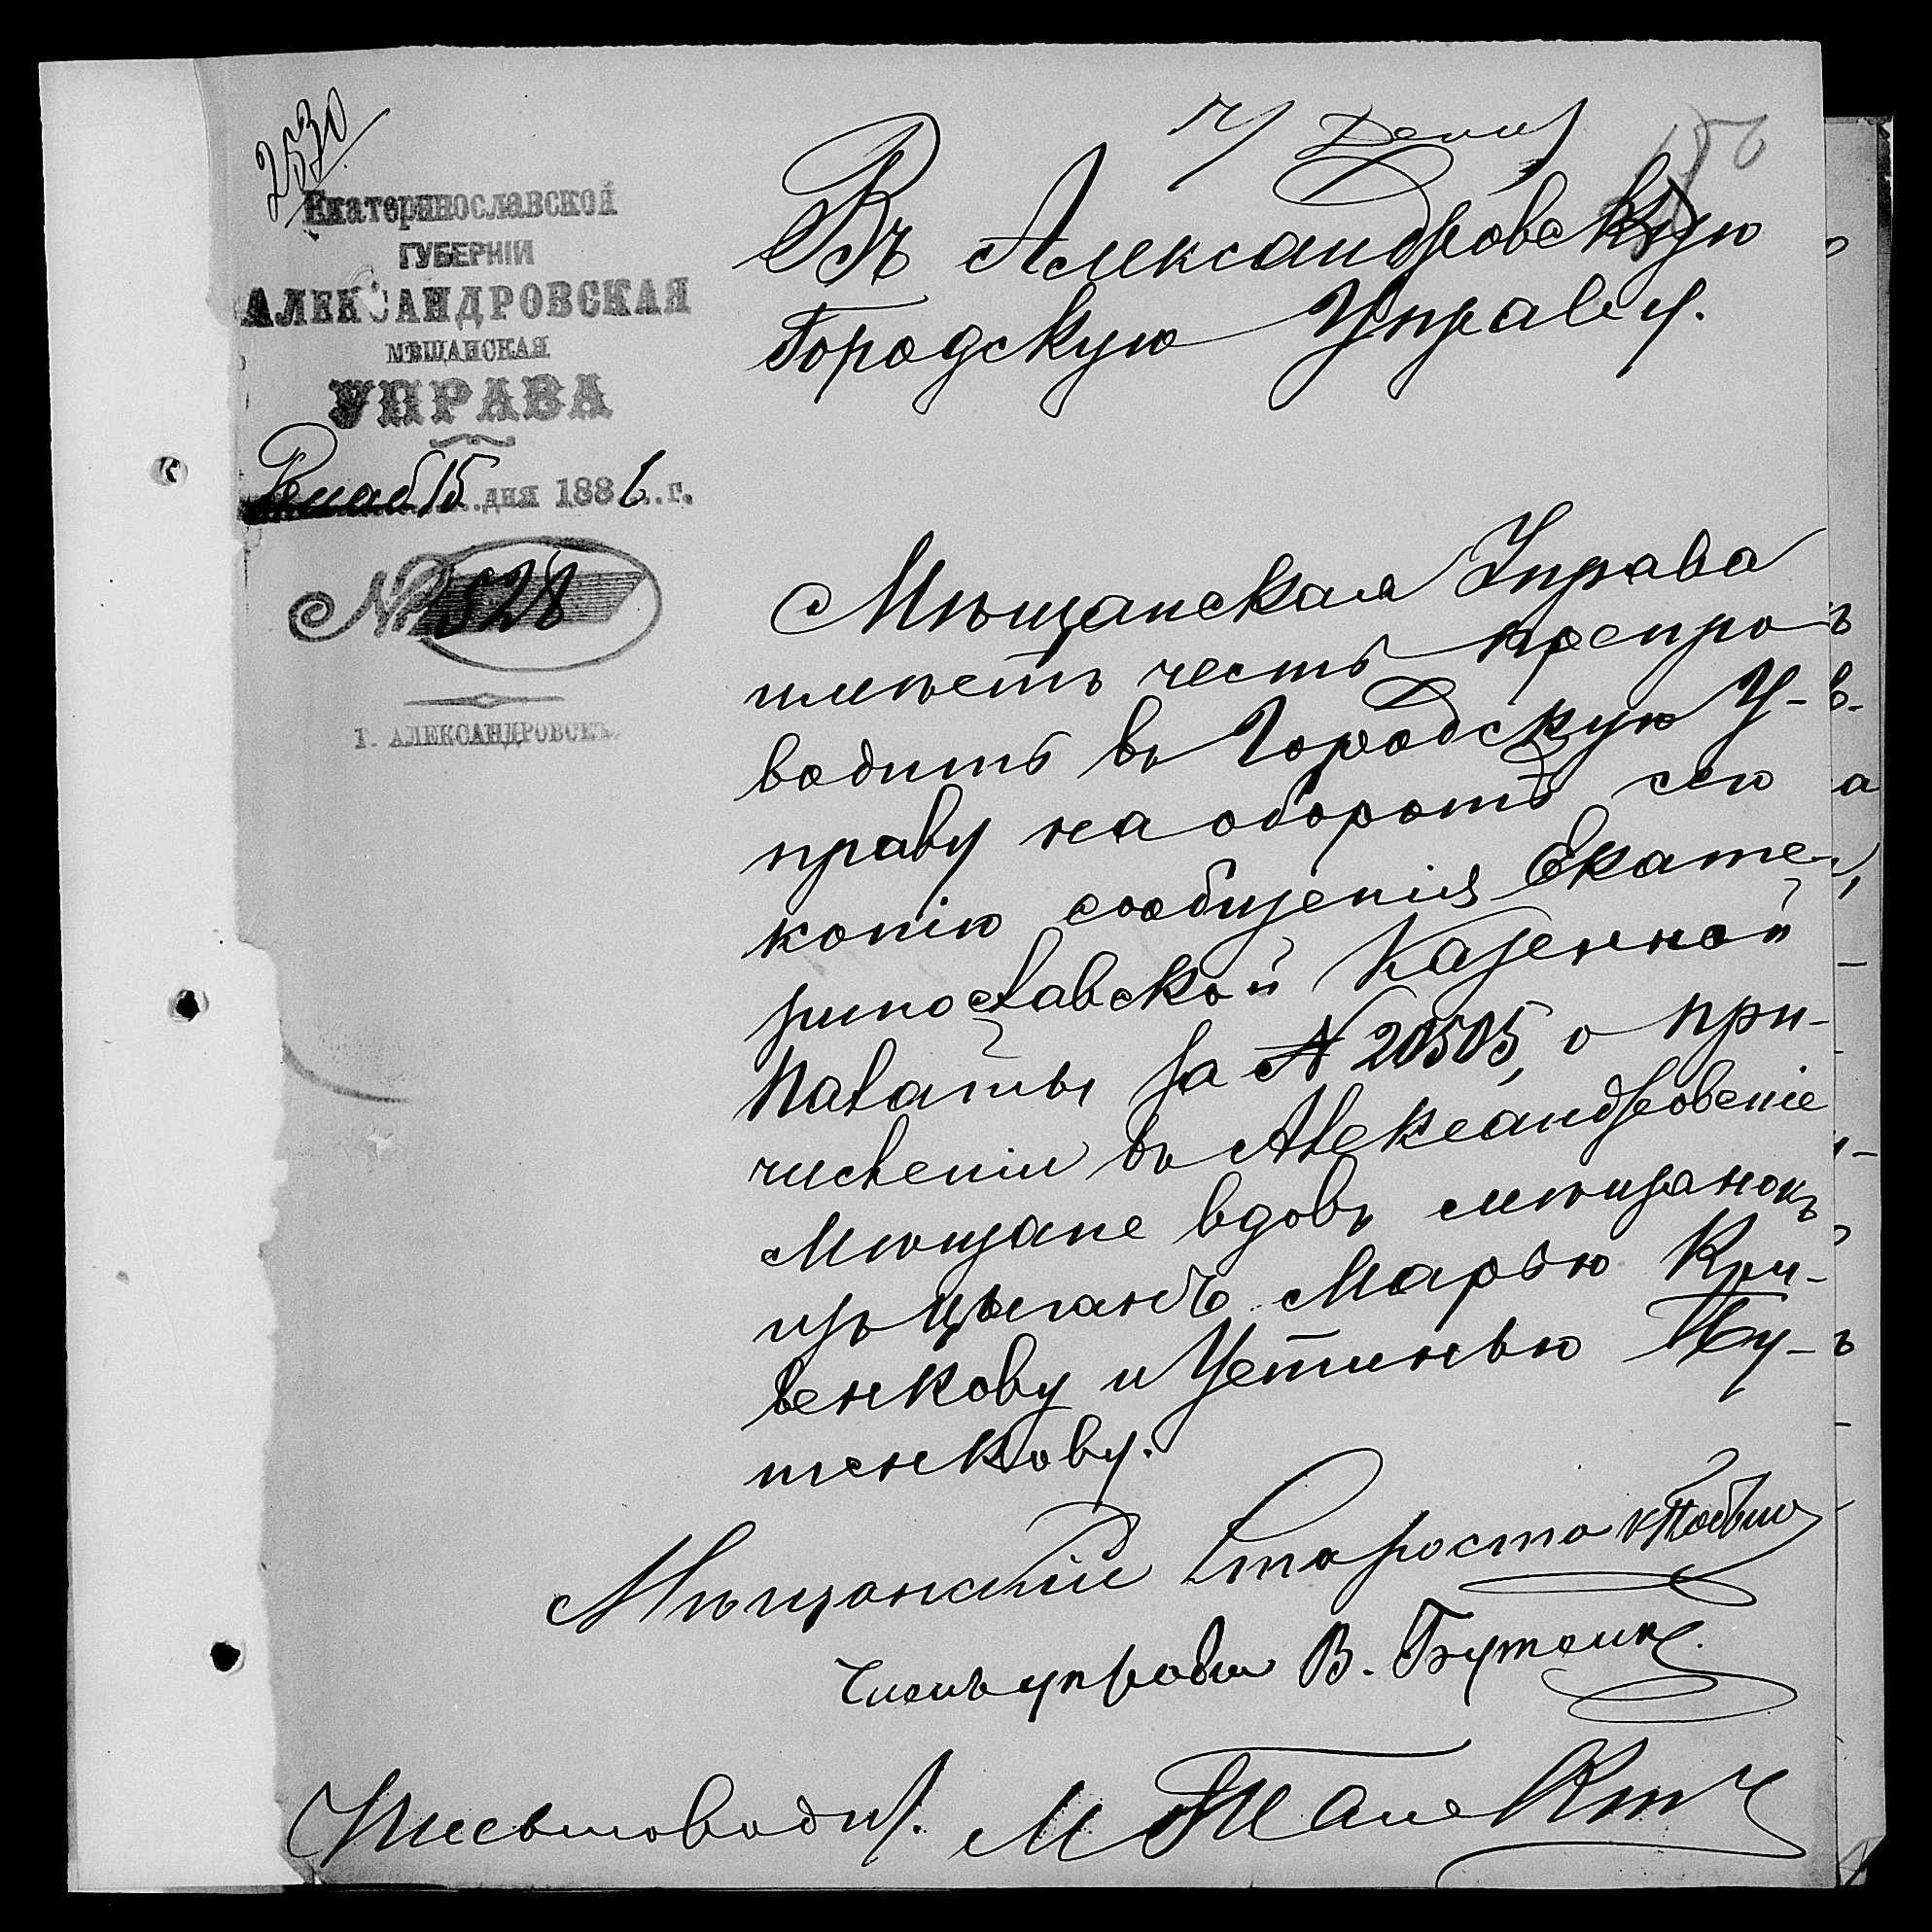 2530
Екатеринославской
ГУБЕРНІИ
АЛЕКСАНДРОВСКАЯ
МѢЩАНСКАЯ
УПРАВА
Декаб 15 дня 1886 г.
№ 828
Г. АЛЕКСАНДРОВСКЪ.
17 Декаб
156
Въ Александровскую
Городскую Управу.
Мѣщанская Управа
имѣетъ честь препро
водить въ Городскую У-
праву на оборотѣ сего
копію сообщенія Екате-
ринославской Казенной
Палаты за № 20505, о при-
численіи въ Александровскіе
Мѣщане вдовъ мѣщанокъ
изъ цыганъ Марью Кри-
венкову и Устинью Пу-
тенкову.
Мѣщанскій Староста
Членъ управы В. Бутенко
Письмоводит.